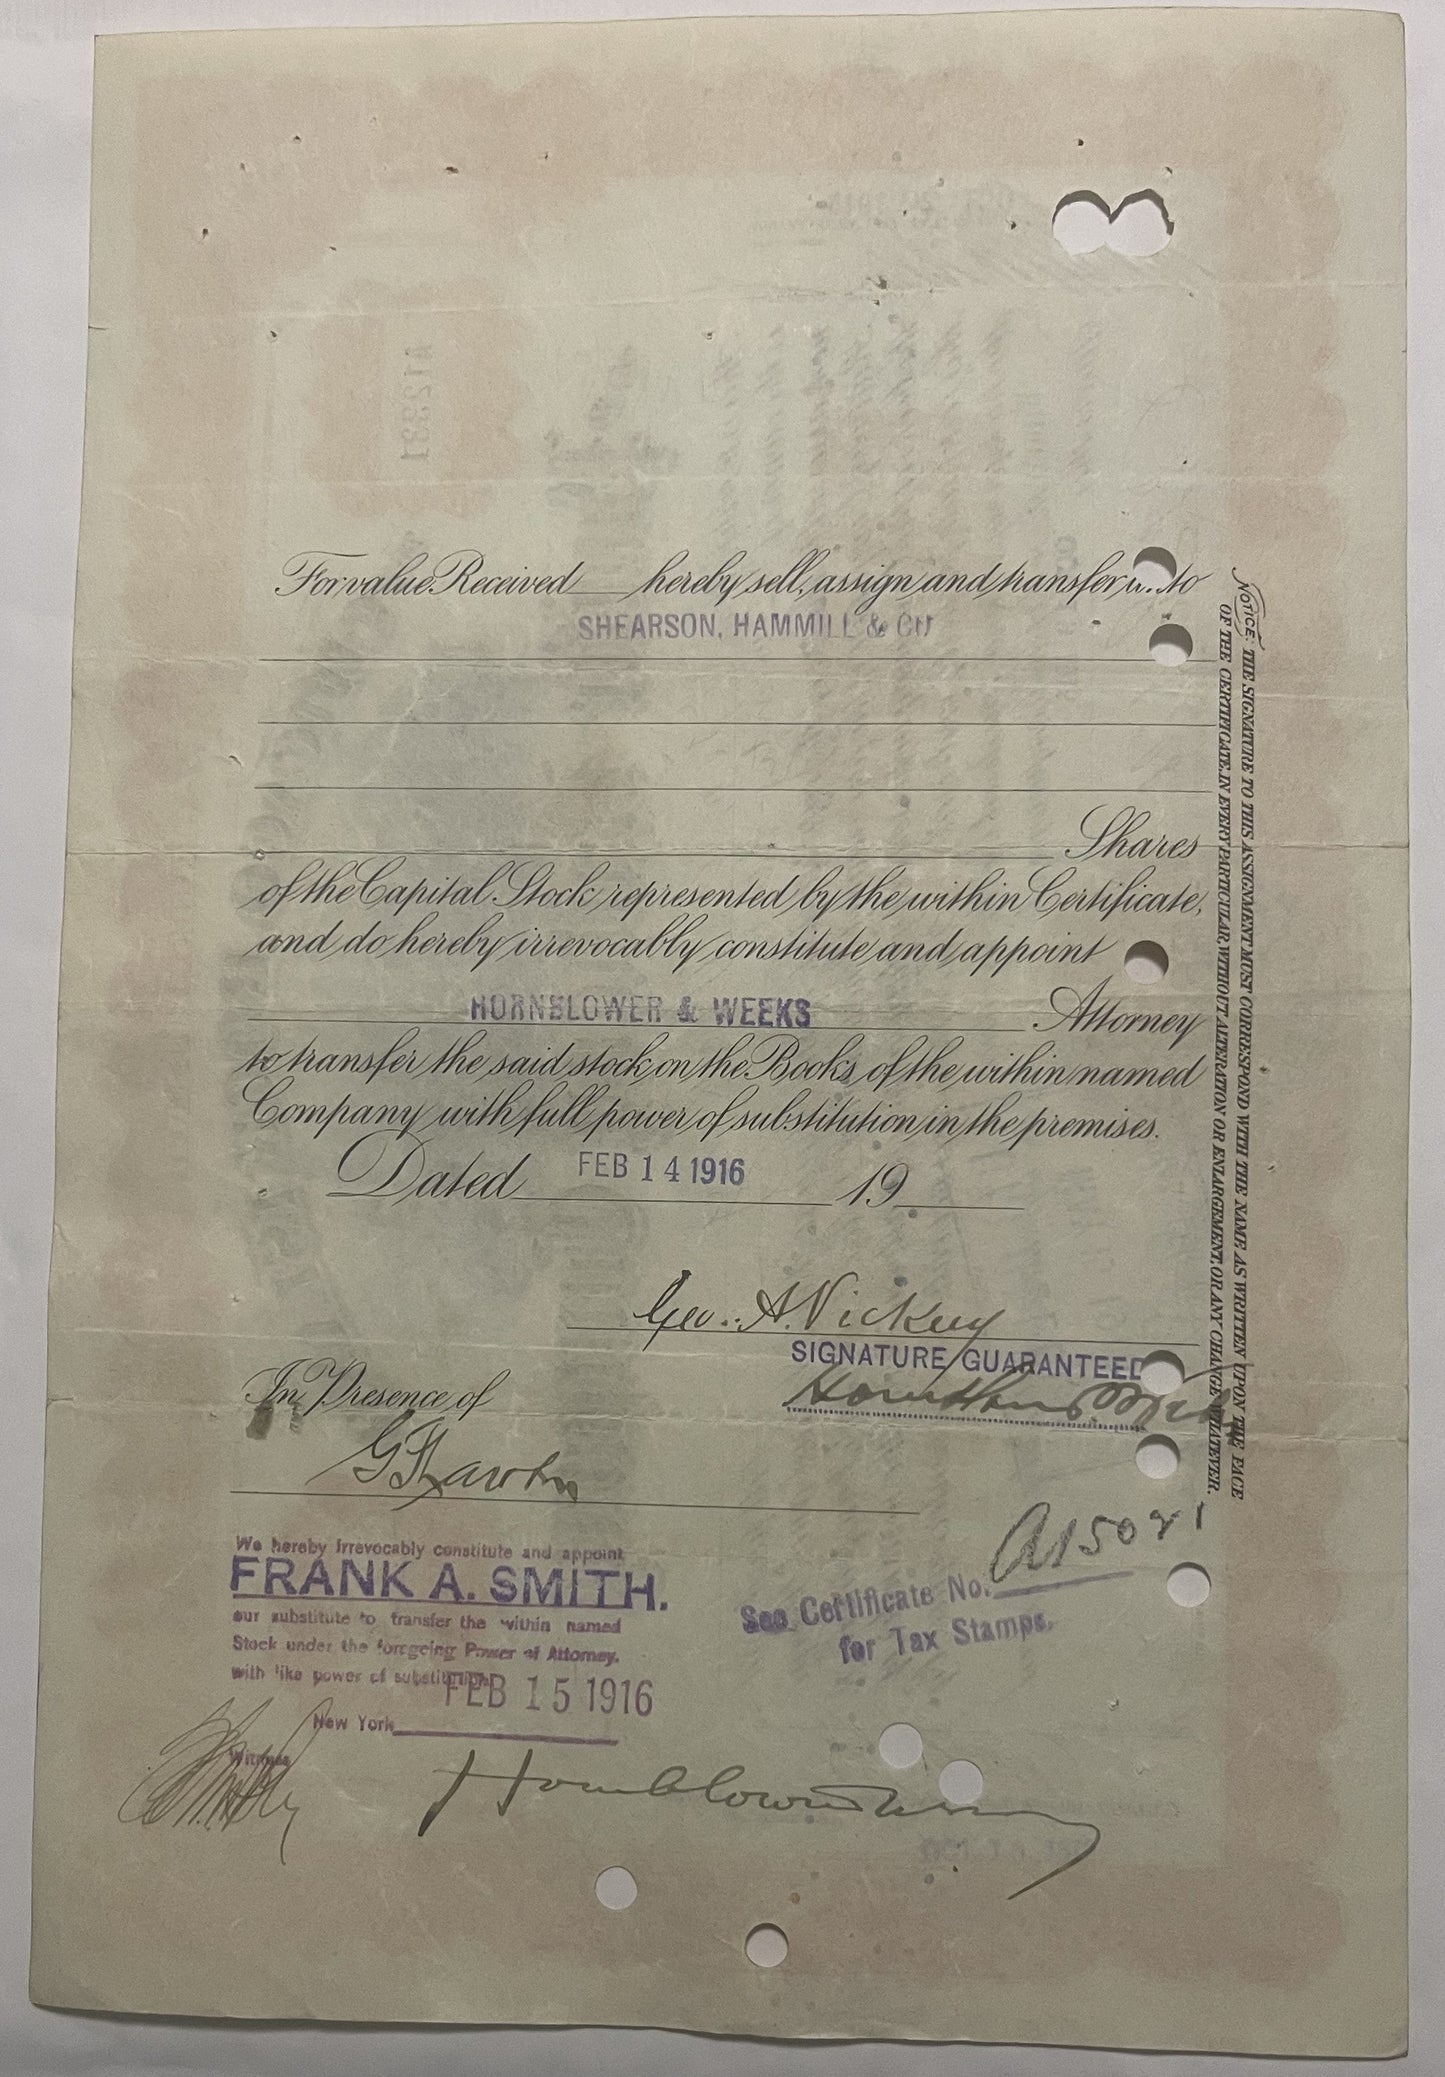 For value Received ___ hereby sell, assign and transfer unto
SHEARSON, HAMMILL & CO
Shares
of the Capital Stock represented by the within Certificate,
and do hereby irrevocably constitute and appoint
HORNBLOWER & WEEKS Attorney
to transfer the said stock on the Books of the within named
Company with full power of substitution in the premises.
Dated FEB 14 1916 19
Geo. A. Vickery
SIGNATURE GUARANTEED
In Presence of
We hereby irrevocably constitute and appoint
FRANK A. SMITH.
our substitute to transfer the within named
Stock under the foregoing Power of Attorney,
with like power of substitution
FEB 15 1916
New York
Witness
Hornblower & Weeks
A15021
See Certificate No.
for Tax Stamps.
NOTICE: THE SIGNATURE TO THIS ASSIGNMENT MUST CORRESPOND WITH THE NAME AS WRITTEN UPON THE FACE
OF THE CERTIFICATE, IN EVERY PARTICULAR, WITHOUT ALTERATION OR ENLARGEMENT, OR ANY CHANGE WHATEVER.